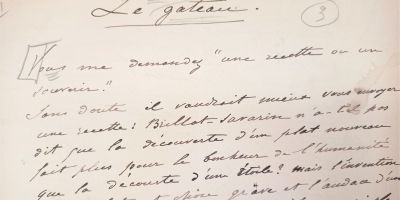 Le gateau.
3
Vous me demandez "une recette ou un
souvenir."
Sans doute il vaudrait mieux vous envoyer
une recette: Brillat-Savarin n'a-t-il pas
dit que la découverte d'un plat nouveau
fait plus pour le bonheur de l'humanité
que la découverte d'un Étoile? mais l'invention
grave et l'audace d'un